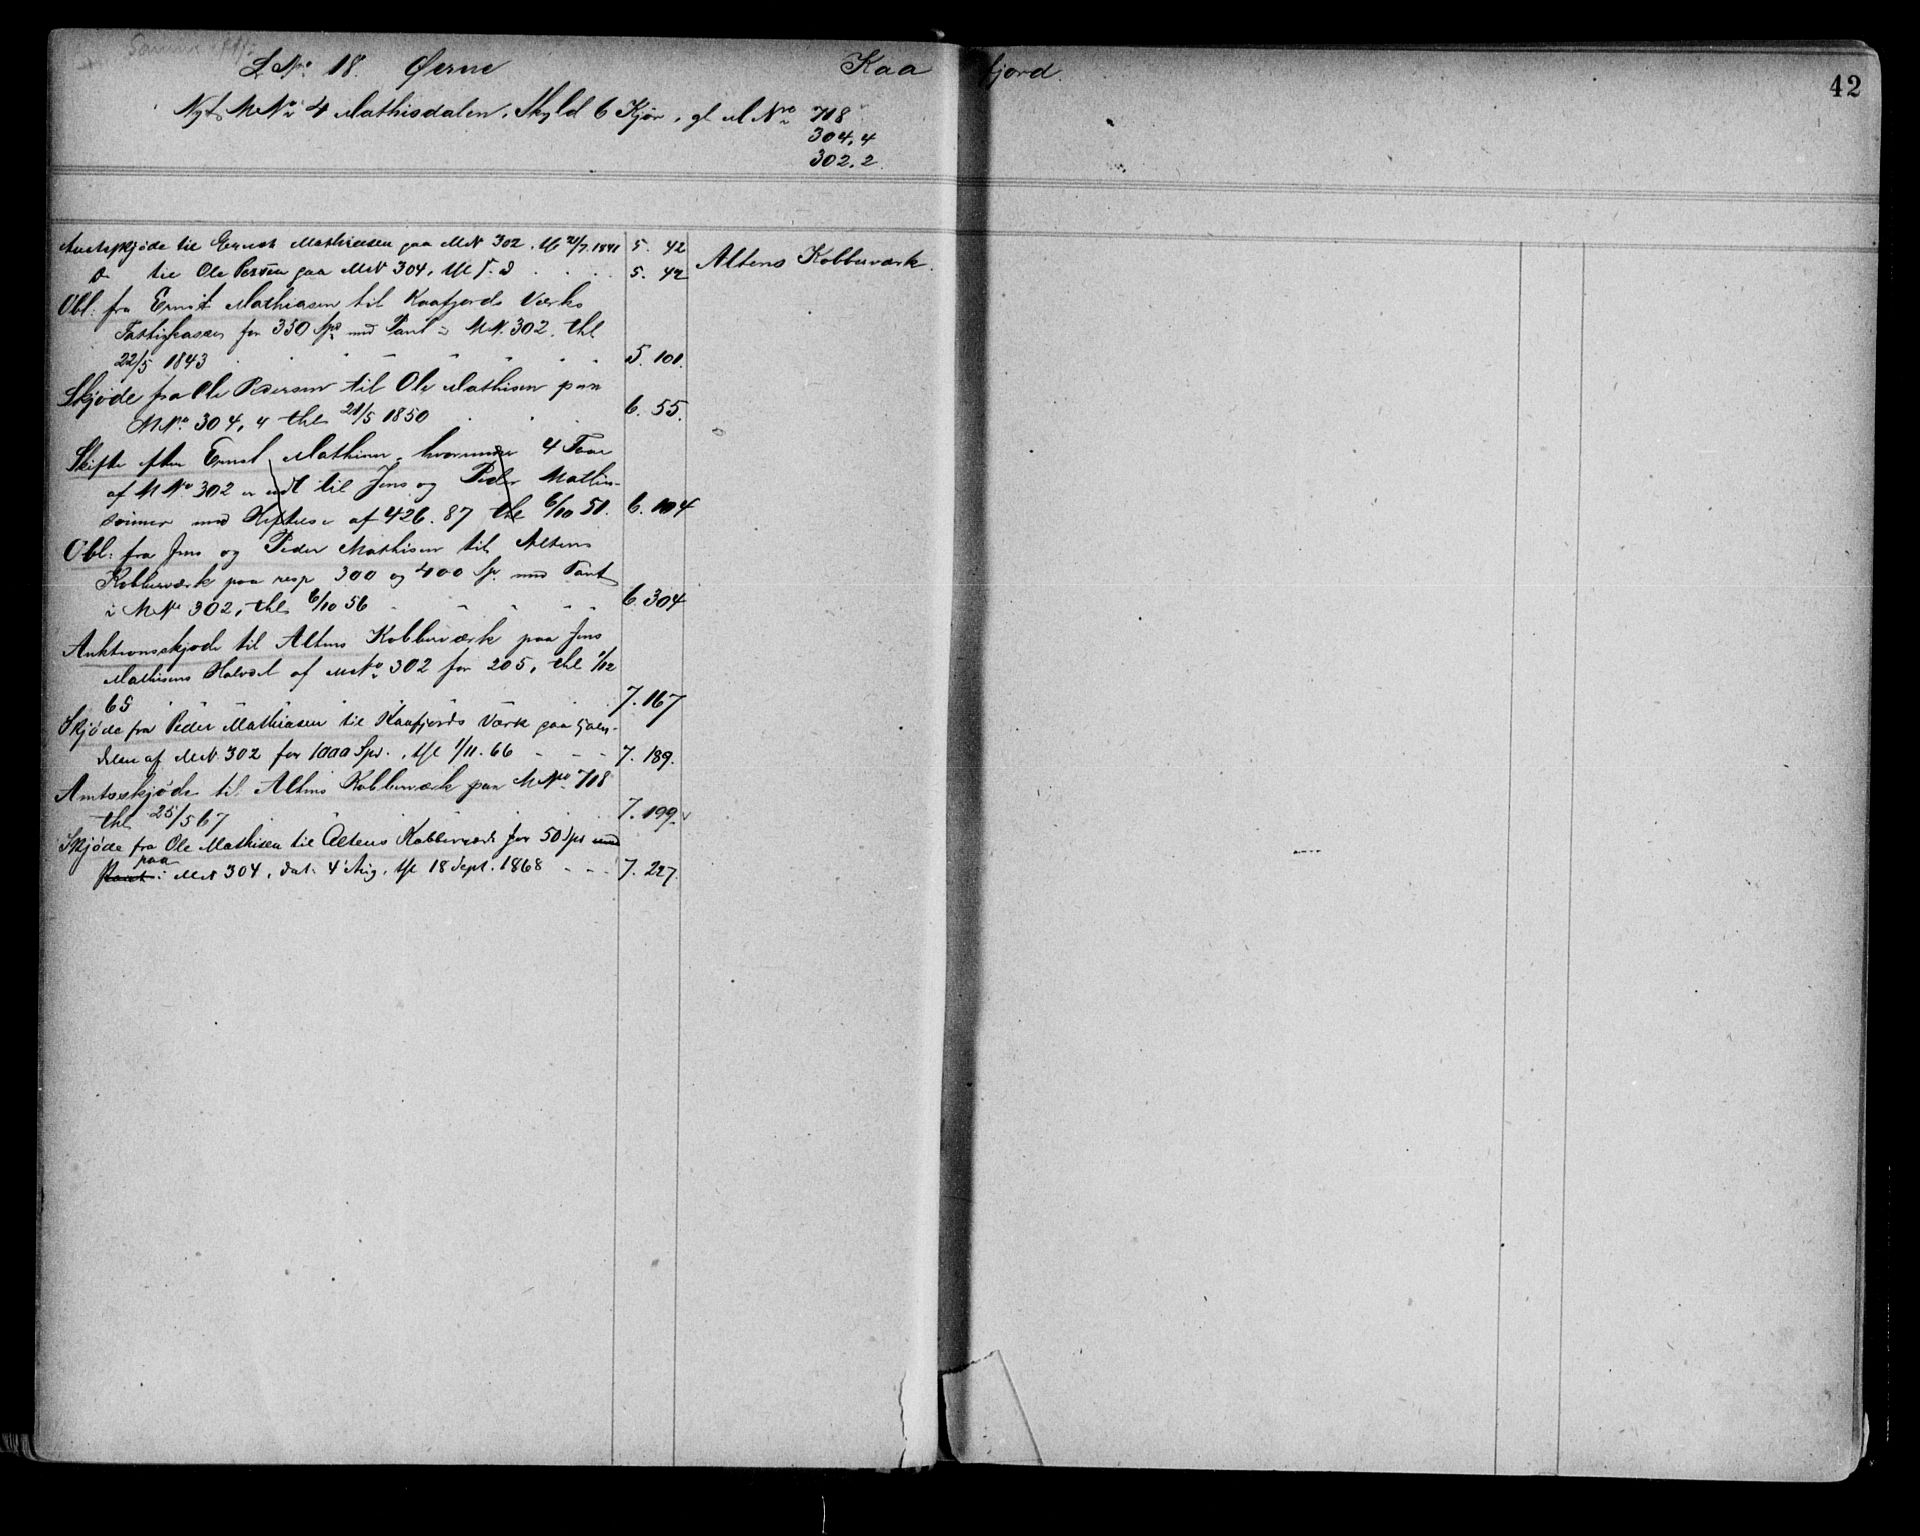 L No. 18. Øerne Kaafjord. 42
Nyt M No 4 Mathisdalen, Skyld 6 Kjør, gl M Nro 718
304,4
302.2
Amtsskjøde til Ernst Mathiasen paa MN 302, tſl 21/7 1841 5. 42 Altens Kobberværk.
Do til Ole Persen paa MN 304, tſl s. d . . . . 5. 42
Obl. fra Ernst Mathiasen til Kaafjords Værks
for 350 Spd med Pant i MN. 302. thl
22/5 1843 5. 101.
Skjøde fra Ole Pedersen til Ole Mathisen paa
MNo. 304, 4 thl 21/5 1850 6. 55.
Skifte efter Ernst Mathisen, hvorunder 4
af MNo 302 er udl til Jens og Peder Mathis-
sønner med Heftelse af 426. 87 thl 6/10 51. 6. 104
Obl. fra Jens og Peder Mathisen til Altens
Kobberværk paa resp 300 og 400 Sp. med Pant
i MNo 302, thl 6/10 56 6. 304
Auktionsskjøde til Altens Kobberværk paa Jens
Mathisens Halvdel af MNo 302 for 205, thl 1/12
65 7. 167
Skjøde fra Peder Mathiasen til Kaafjords Værk paa
delen af MN 302 for 1000 Spd., tſl 1/11. 66 - - - 7. 189.
Amtsskjøde til Altens Kobberværk paa MNo. 718
thl 25/5 67 7. 199.
Skjøde fra Ole Mathisen til Altens Kobberværk for 50 Spd med
paa
Pant i MN 304, dat. 4 Aug, tſl 18 Sept. 1868 - - - 7. 227.